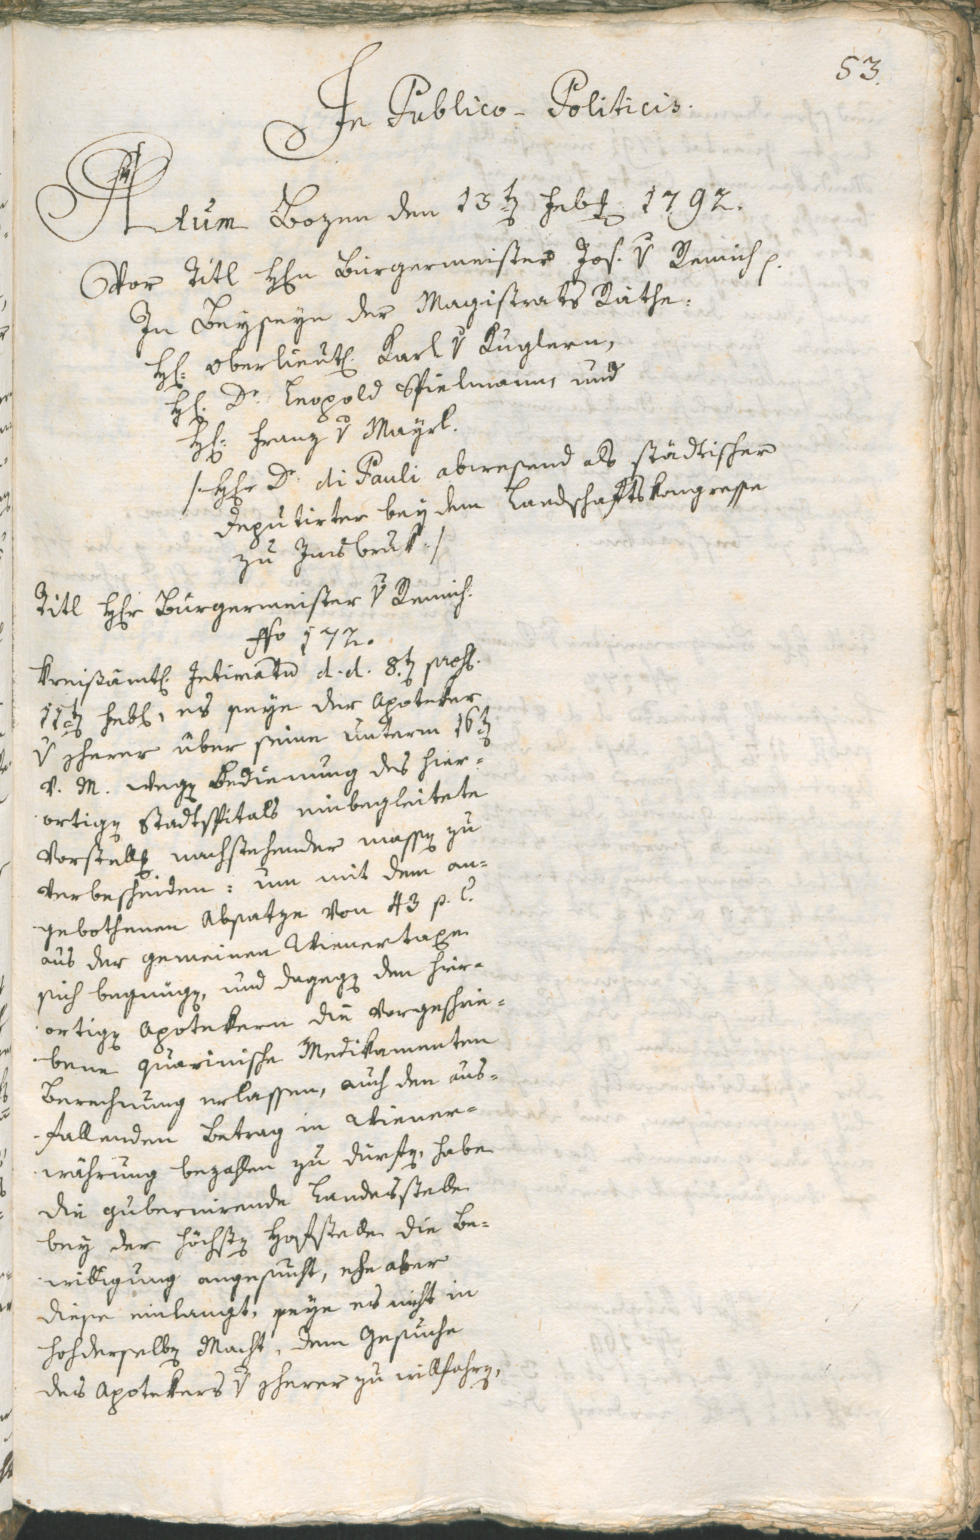 53.
In Publico-Politicis.
Actum Bozen den 13ten Febr. 1792.
Vor Titl Hrn Bürgermeister Jos. v Remich p.
In Beyseyn der Magistrats Räthe:
H: Oberlieut. Karl v Kuglern,
H: Dr. Leopold Spielmann, und
H: Franz v Mayrl.
/: Hr Dr. di Pauli abwesend als städtischer
Deputirter bey dem Landschaftskongresse
zu Insbruk :/
Titl Hr Bürgermeister v Remich.
No 172.
Kreisämtl. Intimatum d.d. 8ten
11ten Febr, es seye der Apoteker
v Scherer über seine unterm 16ten
v. M. wegen Bedienung des hier-
ortigen Stadtspitals einbegleitete
Vorstellg nachstehender massen zu
verbescheiden: um mit dem an-
gebothenen Absatze von 43 p. C.
aus der gemeinen Wienertaxe
sich begnügen, und dagegen den hier-
ortigen Apotekern die vorgeschrie-
bene quarinische Medikamenten
Berechnung erlassen, auch den aus-
fallenden Betrag in Wiener-
währung bezahlen zu dürfen, habe
die gubernirende Landesstelle
bey der höchsten Hofstelle die Be-
willigung angesucht, ehe aber
diese einlangt, seye es nicht in
hochderselben Macht, dem Gesuche
des Apotekers v Scherer zu willfahren,